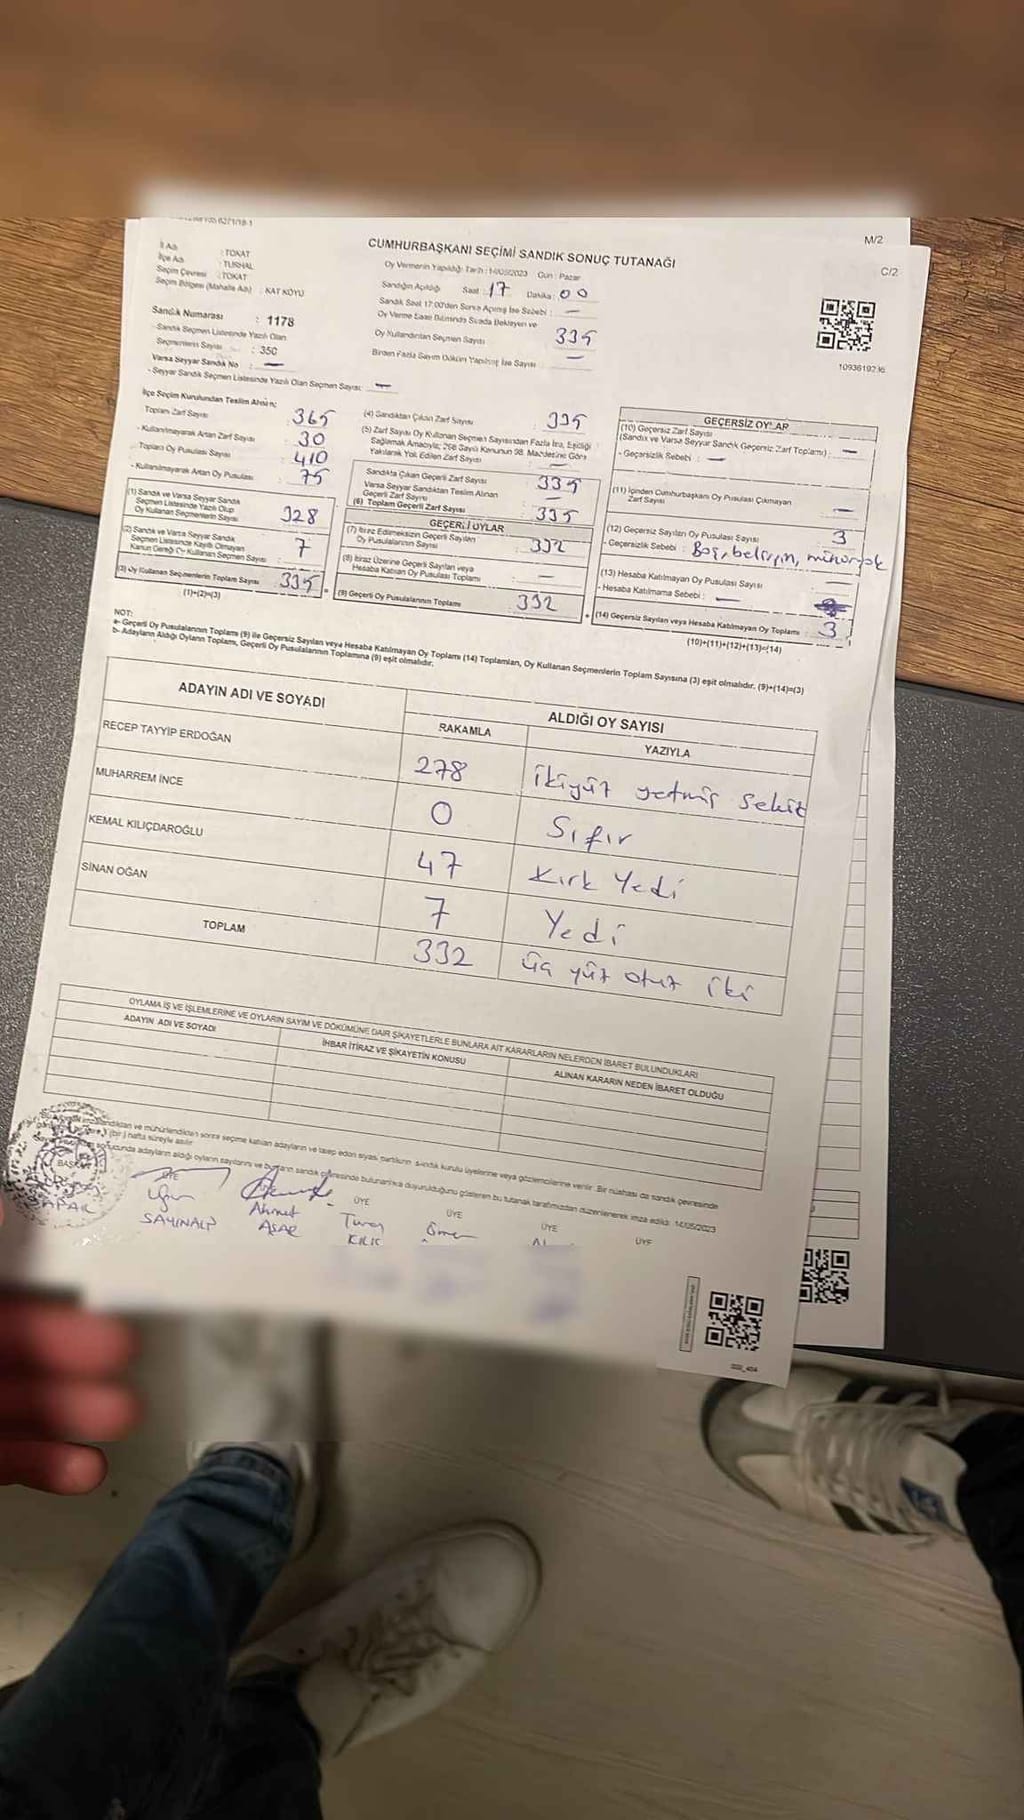 M/2
C/2
CUMHURBAŞKANI SEÇİMİ SANDIK SONUÇ TUTANAĞI
İl Adı : TOKAT
İlçe Adı : TURHAL
Seçim Çevresi : TOKAT
Seçim Bölgesi (Mahalle Adı) : KAT KÖYÜ
Oy Vermenin Yapıldığı Tarih : 14/05/2023 Gün : Pazar
Sandığın Açıldığı Saat : 17 Dakika : 00
Sandık Saat 17:00'den Sonra Açılmış İse Sebebi : —
Oy Verme Saati Bitiminde Sırada Bekleyen ve
Oy Kullandırılan Seçmen Sayısı 335
Birden Fazla Sayım Döküm Yapılmış İse Sayısı —
1093619236
Sandık Numarası : 1178
Sandık Seçmen Listesinde Yazılı Olan
Seçmenlerin Sayısı : 350
Varsa Seyyar Sandık No : —
- Seyyar Sandık Seçmen Listesinde Yazılı Olan Seçmen Sayısı: —
İlçe Seçim Kurulundan Teslim Alınan;
Toplam Zarf Sayısı 365
- Kullanılmayarak Artan Zarf Sayısı 30
Toplam Oy Pusulası Sayısı 410
- Kullanılmayarak Artan Oy Pusulası 75
(1) Sandık ve Varsa Seyyar Sandık
Seçmen Listesinde Yazılı Olup
Oy Kullanan Seçmenlerin Sayısı 328
(2) Sandık ve Varsa Seyyar Sandık
Seçmen Listesinde Kayıtlı Olmayan
Kanun Gereği Oy Kullanan Seçmen Sayısı 7
(3) Oy Kullanan Seçmenlerin Toplam Sayısı 335
(1)+(2)=(3)
(4) Sandıktan Çıkan Zarf Sayısı : 335
(5) Zarf Sayısı Oy Kullanan Seçmen Sayısından Fazla İse, Eşitliği
Sağlamak Amacıyla; 298 Sayılı Kanunun 98. Maddesine Göre
Yakılarak Yok Edilen Zarf Sayısı —
Sandıkta Çıkan Geçerli Zarf Sayısı 335
Varsa Seyyar Sandıktan Teslim Alınan
Geçerli Zarf Sayısı —
(6) Toplam Geçerli Zarf Sayısı 335
GEÇERLİ OYLAR
(7) İtiraz Edilmeksizin Geçerli Sayılan
Oy Pusulalarının Sayısı 332
(8) İtiraz Üzerine Geçerli Sayılan veya
Hesaba Katılan Oy Pusulası Toplamı —
(9) Geçerli Oy Pusulalarının Toplamı 332
GEÇERSİZ OYLAR
(10) Geçersiz Zarf Sayısı
(Sandık ve Varsa Seyyar Sandık Geçersiz Zarf Toplamı) : —
- Geçersizlik Sebebi : —
(11) İçinden Cumhurbaşkanı Oy Pusulası Çıkmayan
Zarf Sayısı —
(12) Geçersiz Sayılan Oy Pusulası Sayısı 3
- Geçersizlik Sebebi : Boş,
(13) Hesaba Katılmayan Oy Pusulası Sayısı —
- Hesaba Katılmama Sebebi : —
(14) Geçersiz Sayılan veya Hesaba Katılmayan Oy Toplamı 3
(10)+(11)+(12)+(13)=(14)
NOT:
a- Geçerli Oy Pusulalarının Toplamı (9) ile Geçersiz Sayılan veya Hesaba Katılmayan Oy Toplamı (14) Toplamları, Oy Kullanan Seçmenlerin Toplam Sayısına (3) eşit olmalıdır. (9)+(14)=(3)
b- Adayların Aldığı Oyların Toplamı, Geçerli Oy Pusulalarının Toplamına (9) eşit olmalıdır.
ADAYIN ADI VE SOYADI ALDIĞI OY SAYISI
RAKAMLA YAZIYLA
RECEP TAYYİP ERDOĞAN 278 ikiyüz yetmiş sekiz
MUHARREM İNCE 0 Sıfır
KEMAL KILIÇDAROĞLU 47 Kırk Yedi
SİNAN OĞAN 7 Yedi
TOPLAM 332 üç yüz otuz iki
OYLAMA İŞ VE İŞLEMLERİNE VE OYLARIN SAYIM VE DÖKÜMÜNE DAİR ŞİKAYETLERLE BUNLARA AİT KARARLARIN NELERDEN İBARET BULUNDUKLARI
ADAYIN ADI VE SOYADI İHBAR İTİRAZ VE ŞİKAYETİN KONUSU ALINAN KARARIN NEDEN İBARET OLDUĞU
mühürlendikten sonra seçime katılan adayların ve talep eden siyasi partilerin sandık kurulu üyelerine veya gözlemcilerine verilir. Bir nüshası da sandık çevresinde
(bir) hafta süreyle asılır.
sonucunda adayların aldığı oyların sayılarını ve bunların sandık çevresinde bulunanlara duyurulduğunu gösteren bu tutanak tarafımızdan düzenlenerek imza edildi. 14/05/2023
BAŞKAN ÜYE ÜYE ÜYE ÜYE ÜYE
Uğur Ahmet Turay Ömer
SAYINALP AŞAR KILIÇ